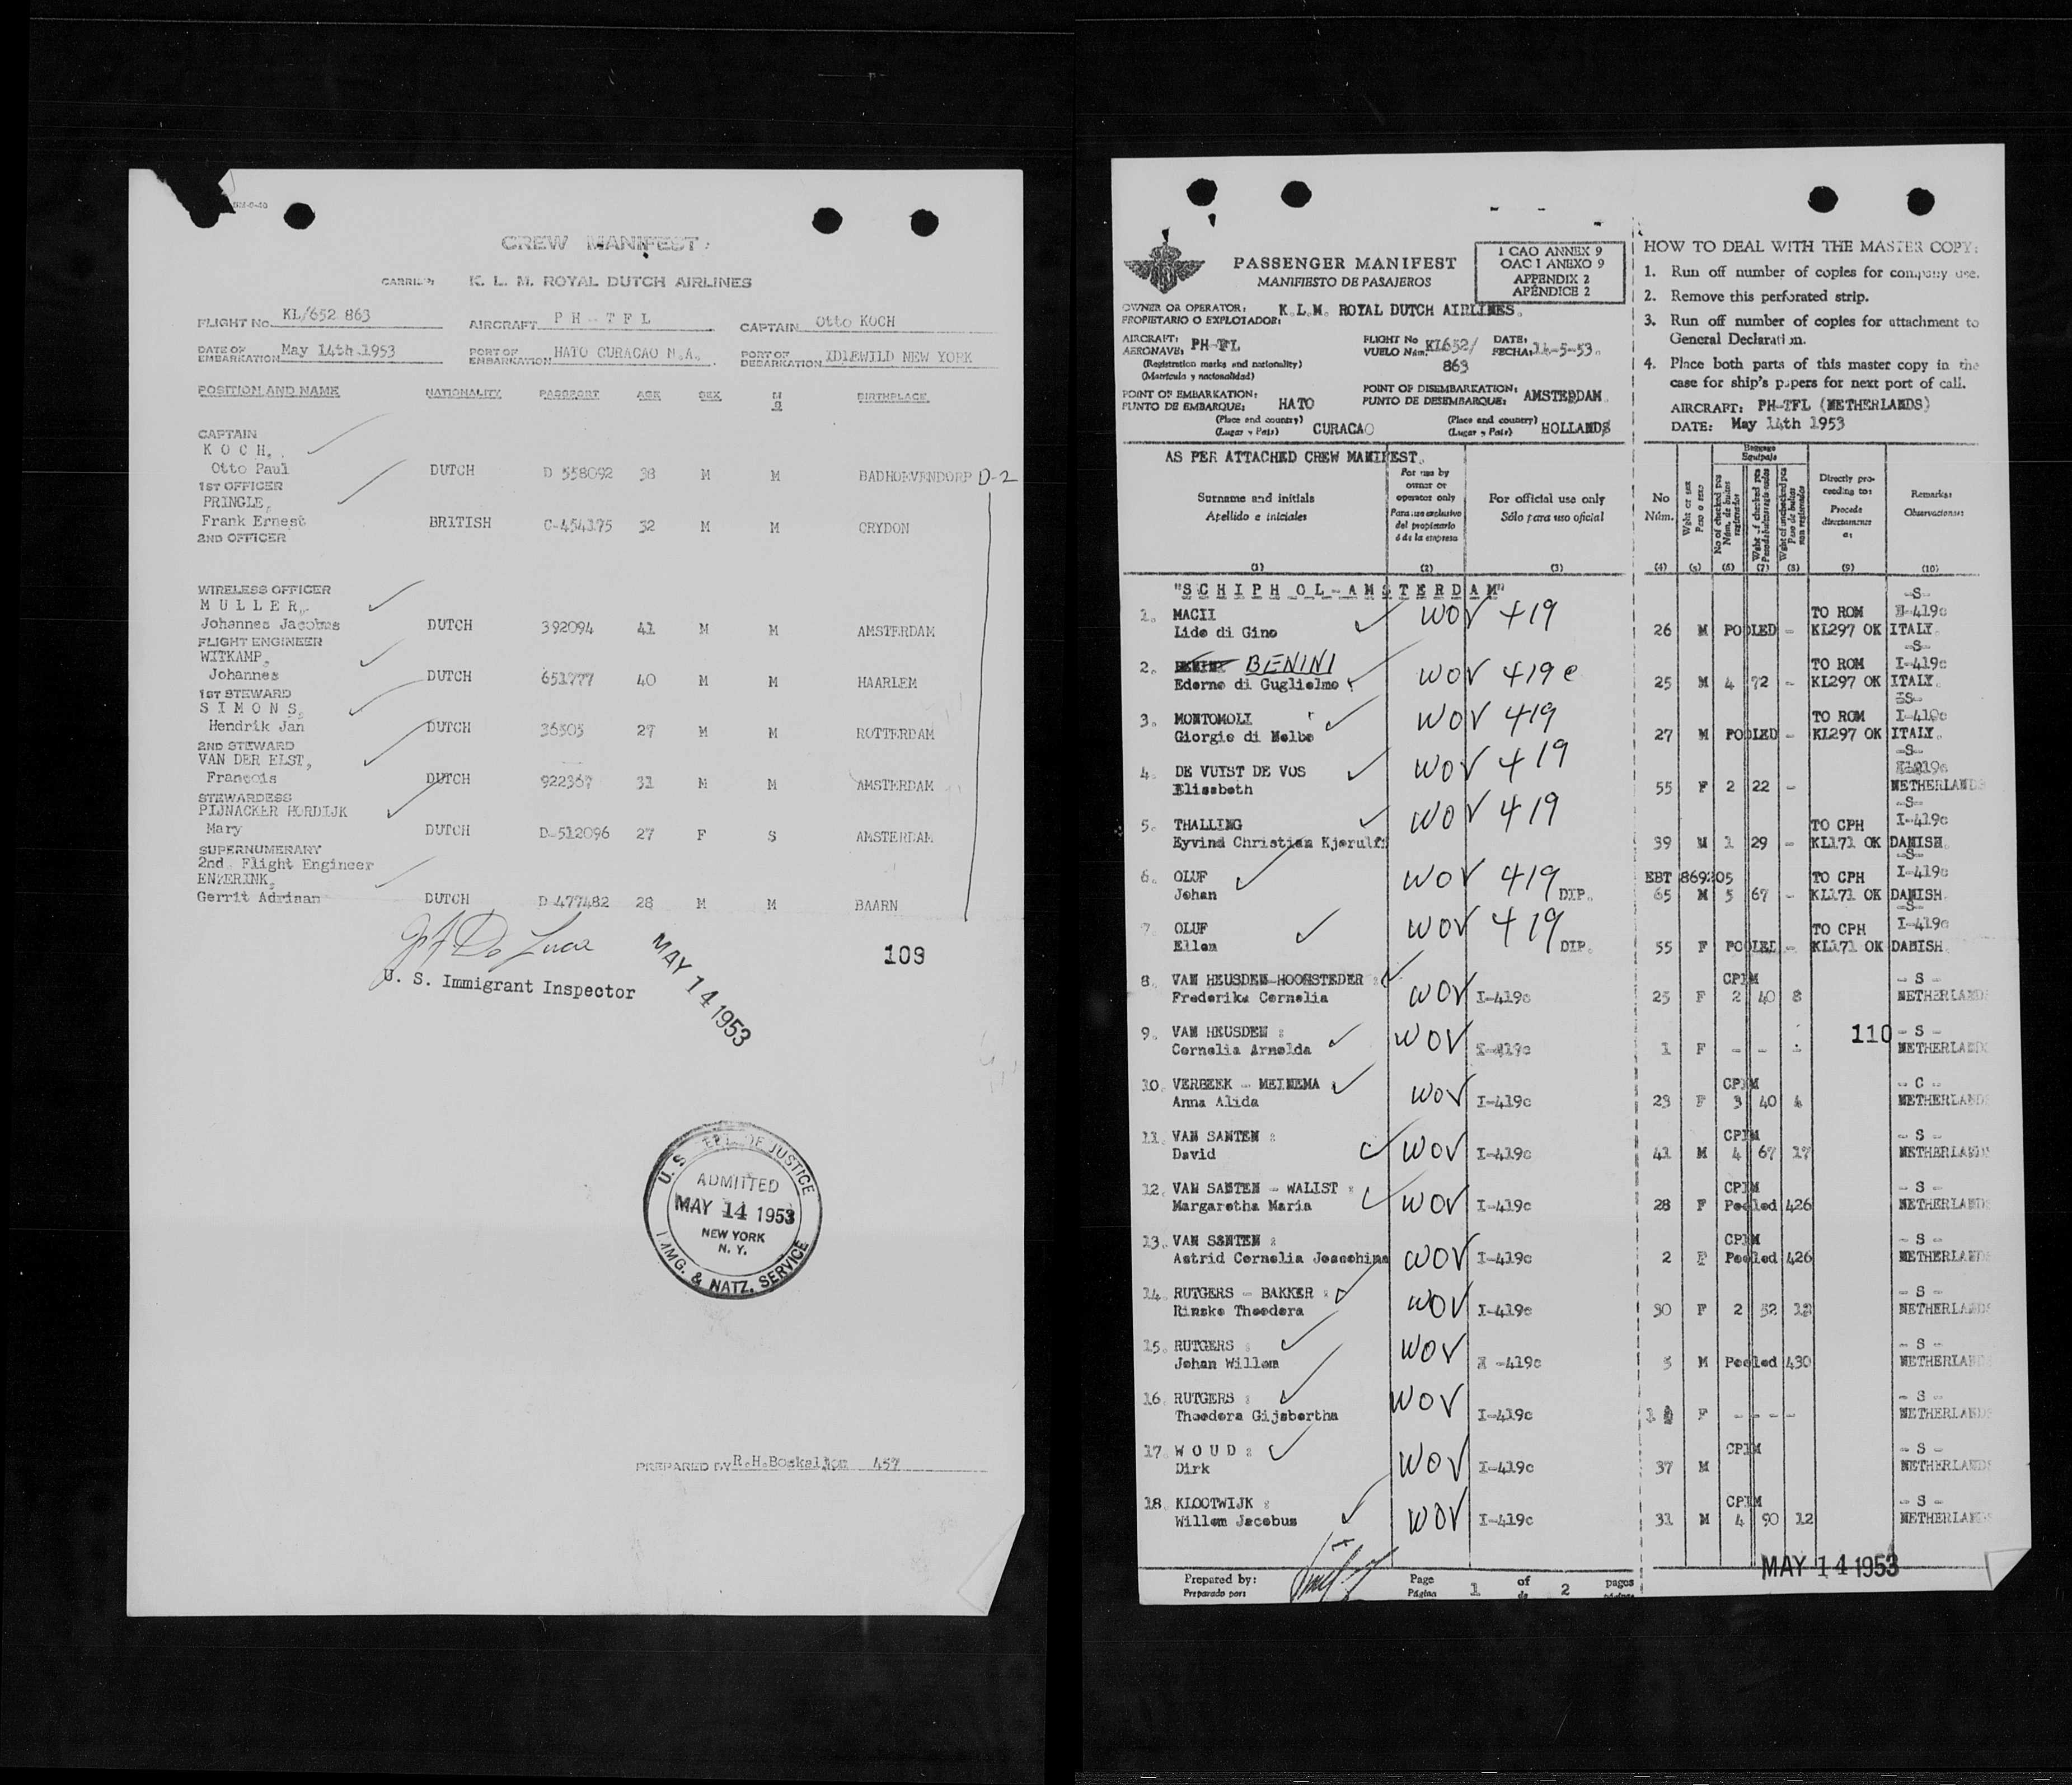 CREW MANIFEST:
K. L. M. ROYAL DUTCH AIRLINES
FLIGHT No. KL/652 863 AIRCRAFT PH-TFL CAPTAIN Otto KOCH
DATE OF EMBARKATION May 14th 1953 PORT OF EMBARKATION HATO CURACAO N.A. PORT OF DEBARKATION IDLEWILD NEW YORK
POSITION AND NAME NATIONALITY PASSPORT AGE SEX M S BIRTHPLACE
CAPTAIN
K O C H,
Otto Paul DUTCH D 558092 38 M M BADHOEVENDORP D-2
1ST OFFICER
PRINGLE,
Frank Ernest BRITISH C-454175 32 M M CRYDON
2ND OFFICER
WIRELESS OFFICER
M U L L E R,
Johannes Jacobus DUTCH 392094 41 M M AMSTERDAM
FLIGHT ENGINEER
WITKAMP,
Johannes DUTCH 651777 40 M M HAARLEM
1ST STEWARD
S I M O N S,
Hendrik Jan DUTCH 36505 27 M M ROTTERDAM
2ND STEWARD
VAN DER ELST,
Francois DUTCH 922367 31 M M AMSTERDAM
STEWARDESS
PIJNACKER HORDIJK
Mary DUTCH D-512096 27 F S AMSTERDAM
SUPERNUMERARY
2nd Flight Engineer
ENZERINK,
Gerrit Adriaan DUTCH D 477482 28 M M BAARN
De Luca
U. S. Immigrant Inspector
MAY 14 1953
109
U. S. DEPT. OF JUSTICE
ADMITTED
MAY 14 1953
NEW YORK
N. Y.
IMMG. & NATZ. SERVICE
PREPARED BY R.H.Boskaljon 457
PASSENGER MANIFEST
MANIFIESTO DE PASAJEROS
I CAO ANNEX 9
OAC I ANEXO 9
APPENDIX 2
APÉNDICE 2
OWNER OR OPERATOR: K.L.M. ROYAL DUTCH AIRLINES.
PROPIETARIO O EXPLOTADOR:
AIRCRAFT: PH-TFL FLIGHT No KL652/ DATE:
AERONAVE: VUELO Núm. 863 FECHA: 14-5-53.
(Registration marks and nationality)
(Matricula y nacionalidad)
POINT OF EMBARKATION: HATO POINT OF DISEMBARKATION: AMSTERDAM.
PUNTO DE EMBARQUE: PUNTO DE DESEMBARQUE:
(Place and country) CURACAO (Place and country) HOLLANDS
(Lugar y Pais) (Lugar y Pais)
HOW TO DEAL WITH THE MASTER COPY:
1. Run off number of copies for company use.
2. Remove this perforated strip.
3. Run off number of copies for attachment to
General Declaration.
4. Place both parts of this master copy in the
case for ship's papers for next port of call.
AIRCRAFT: PH-TFL (NETHERLANDS)
DATE: May 14th 1953
AS PER ATTACHED CREW MANIFEST.
Surname and initials
Apellido e iniciales
(1)
For use by
owner or
operator only
Para uso exclusivo
del propietario
ó de la empresa
(2)
For official use only
Sólo para uso oficial
(3)
No
Núm.
(4)
Wght or sex
Peso o sexo
(5)
Baggage
Equipaje
No of checked pcs
Núm. de bultos
registrados
(6)
Wght of checked pcs
(7)
Wght of unchecked pcs
Peso de bultos
non registrados
(8)
Directly pro-
ceeding to:
Procede
directamente
a:
(9)
Remarks:
Observaciones:
(10)
"S C H I P H O L - A M S T E R D A M"
1. MACII WOV 419 TO ROM -S- I-419c
Lido di Gino 26 M POOLED - KL297 OK ITALY.
2. BENINI WOV 419 c TO ROM -S- I-419c
Ederno di Guglielmo 25 M 4 72 - KL297 OK ITALY.
3. MONTOMOLI WOV 419 TO ROM -S- I-419c
Giorgio di Nelbo 27 M POOLED - KL297 OK ITALY.
4. DE VUYST DE VOS WOV 419 -S- I-419c
Elisabeth 55 F 2 22 - NETHERLANDS
5. THALLING WOV 419 TO CPH -S- I-419c
Eyvind Christian Kjerulff 39 M 1 29 - KL171 OK DANISH.
6. OLUF WOV 419 EBT 869205 TO CPH -S- I-419c
Johan DIP. 65 M 5 67 - KL171 OK DANISH.
7. OLUF WOV 419 TO CPH -S- I-419c
Ellen DIP. 55 F POOLED - KL171 OK DANISH.
8. VAN HEUSDEN-HOORSTEDER : WOV CPIM - S -
Frederika Cornelia I-419c 25 F 2 40 8 NETHERLANDS
9. VAN HEUSDEN : WOV 110 - S -
Cornelia Arnolda I-419c 1 F - - - NETHERLANDS
10. VERBEEK - MEINEMA WOV CPIM - C -
Anna Alida I-419c 23 F 3 40 4 NETHERLANDS
11. VAN SANTEN : WOV CPIM - S -
David I-419c 41 M 4 67 17 NETHERLANDS
12. VAN SANTEN - WALIST : WOV CPIM - S -
Margaretha Maria I-419c 28 F Pooled 426 NETHERLANDS
13. VAN SANTEN : WOV CPIM - S -
Astrid Cornelia Joachima I-419c 2 F Pooled 426 NETHERLANDS
14. RUTGERS - BAKKER : WOV - S -
Rinske Theodora I-419c 30 F 2 52 12 NETHERLANDS
15. RUTGERS : WOV - S -
Johan Willem I-419c 3 M Pooled 430 NETHERLANDS
16. RUTGERS : WOV - S -
Theodora Gijsbertha I-419c F - - - - NETHERLANDS
17. W O U D : WOV CPIM - S -
Dirk I-419c 37 M NETHERLANDS
18. KLOOTWIJK : WOV CPIM - S -
Willem Jacobus I-419c 31 M 4 90 12 NETHERLANDS
MAY 14 1953
Prepared by: Page 1 of 2 pages
Preparado por: Página de